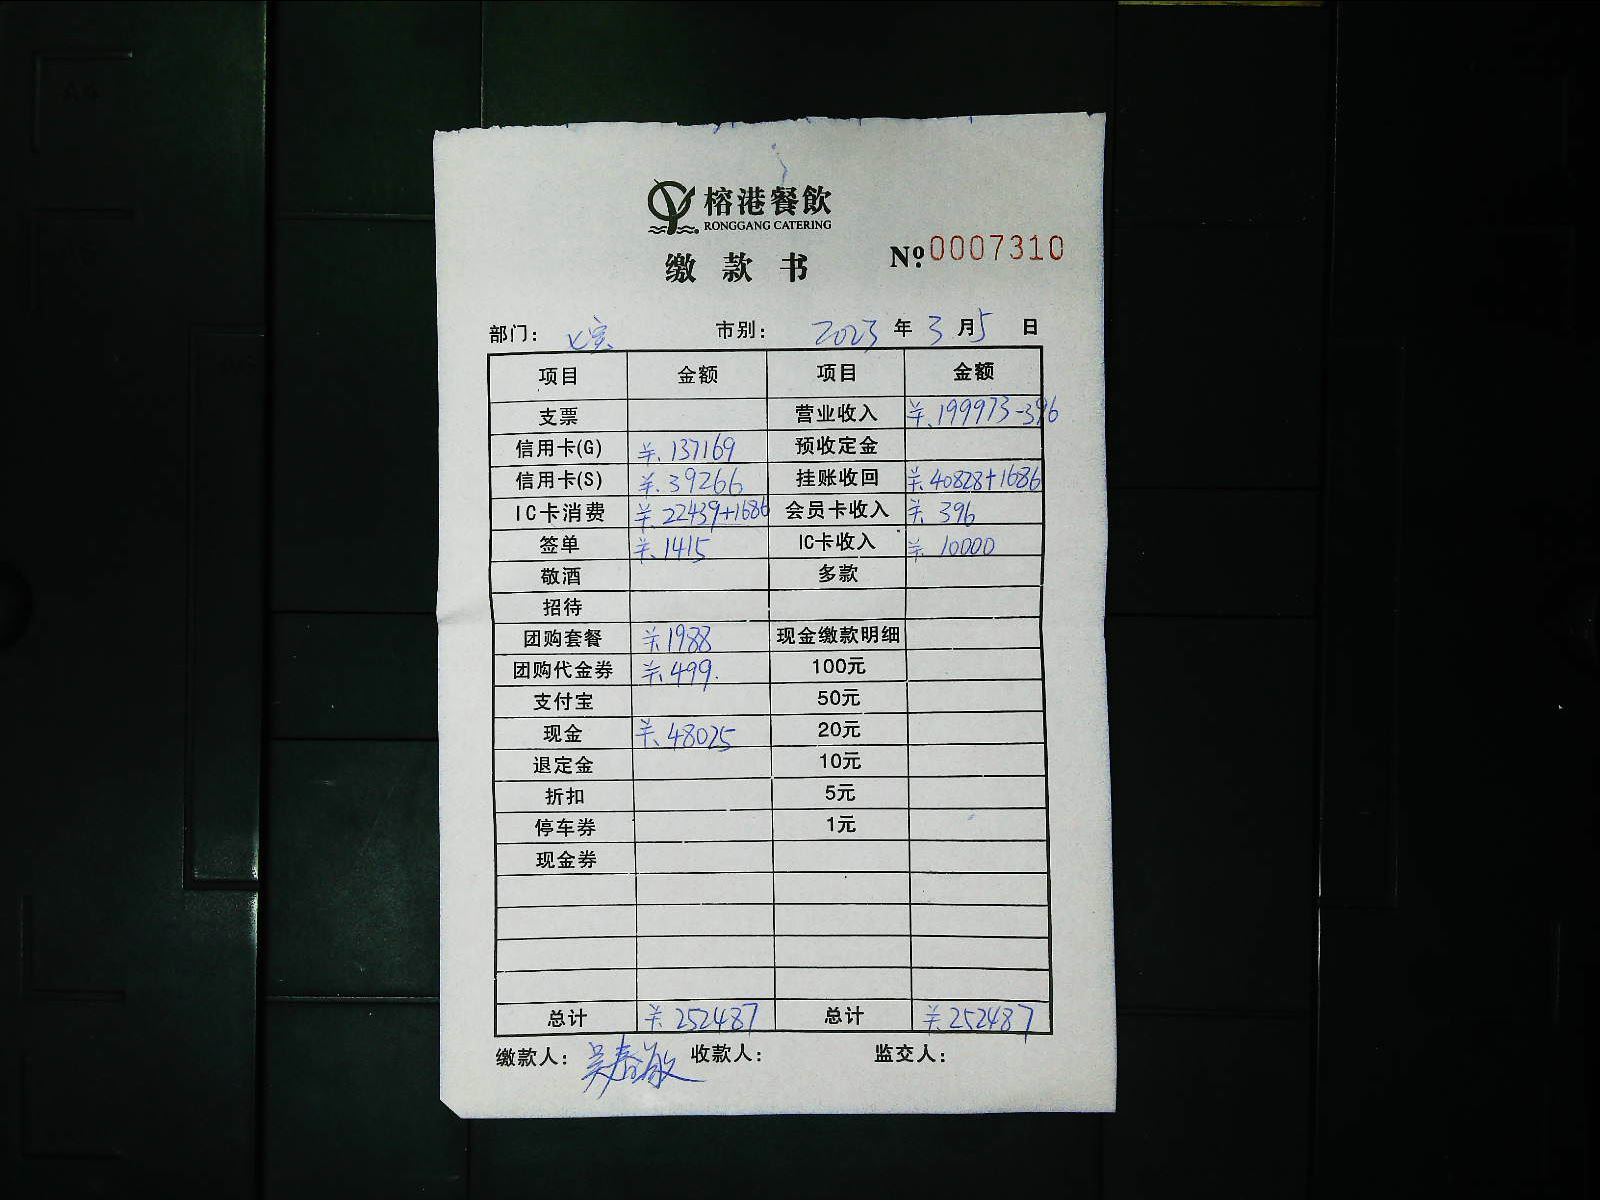 榕港餐飲
RONGGANG CATERING
缴款书 Nº:0007310
部门: 七宝 市别: 2023年3月5日
项目 金额 项目 金额
支票 营业收入 ¥.199973-396
信用卡(G) ¥.137169 预收定金
信用卡(S) ¥.39266 挂账收回 ¥.40828+1686
IC卡消费 ¥.22439+1686 会员卡收入 ¥.396
签单 ¥.1415 IC卡收入 ¥.10000
敬酒 多款
招待
团购套餐 ¥.1988 现金缴款明细
团购代金券 ¥.499. 100元
支付宝 50元
现金 ¥.48025 20元
退定金 10元
折扣 5元
停车券 1元
现金券
总计 ¥.252487 总计 ¥.252487
缴款人: 吴春敏 收款人: 监交人: